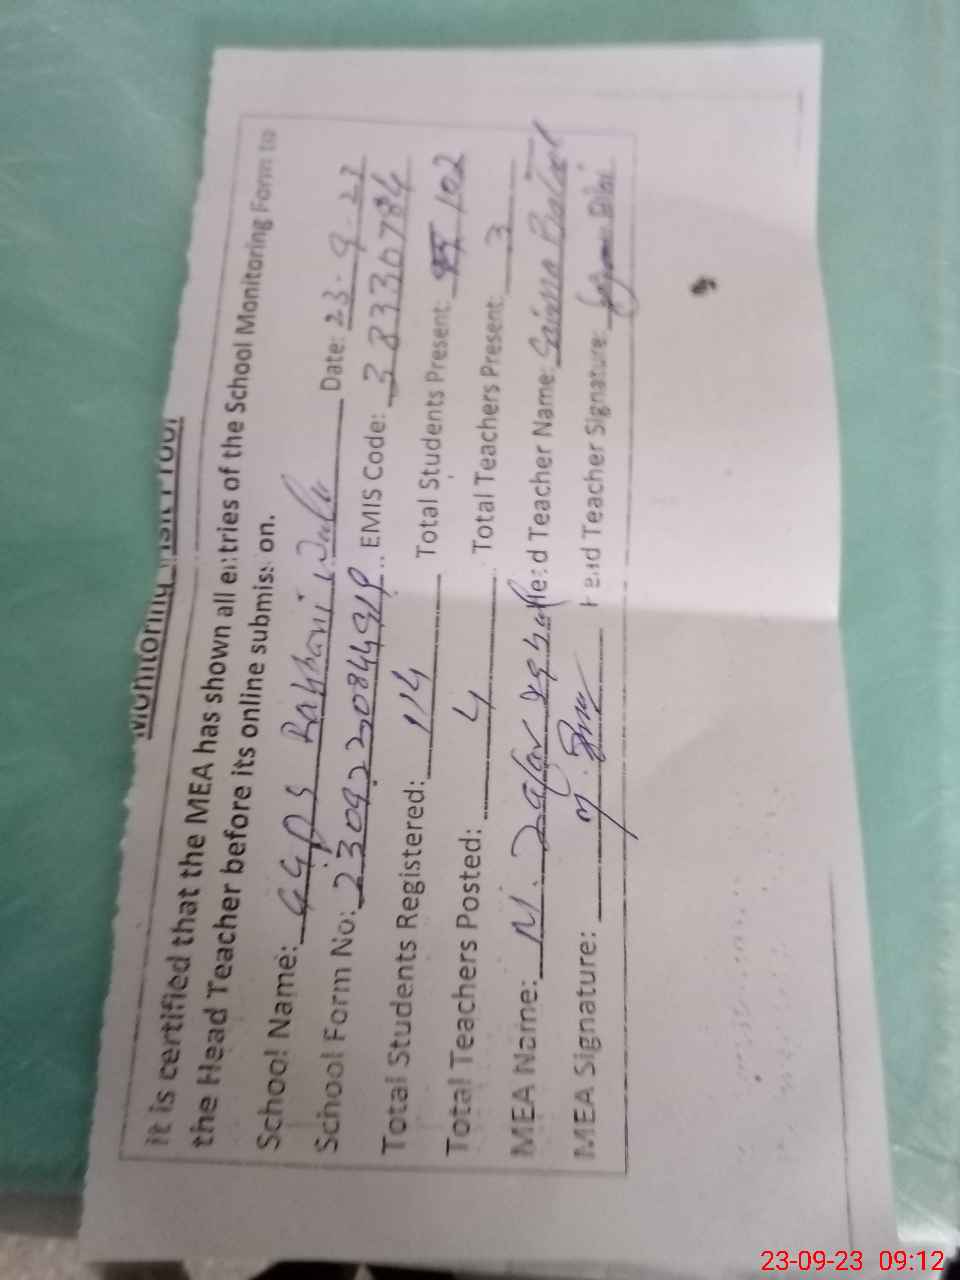 Monitoring Visit Proof
It is certified that the MEA has shown all entries of the School Monitoring Form to
the Head Teacher before its online submission.
School Name: GGPS Rakhani Date: 23.9.23
School Form No: EMIS Code: 38330784
Total Students Registered: 114 Total Students Present: 102
Total Teachers Posted: 4 Total Teachers Present: 3
MEA Name: M. Zafar Iqbal Head Teacher Name: Saima
MEA Signature: Head Teacher Signature: Bibi
23-09-23 09:12